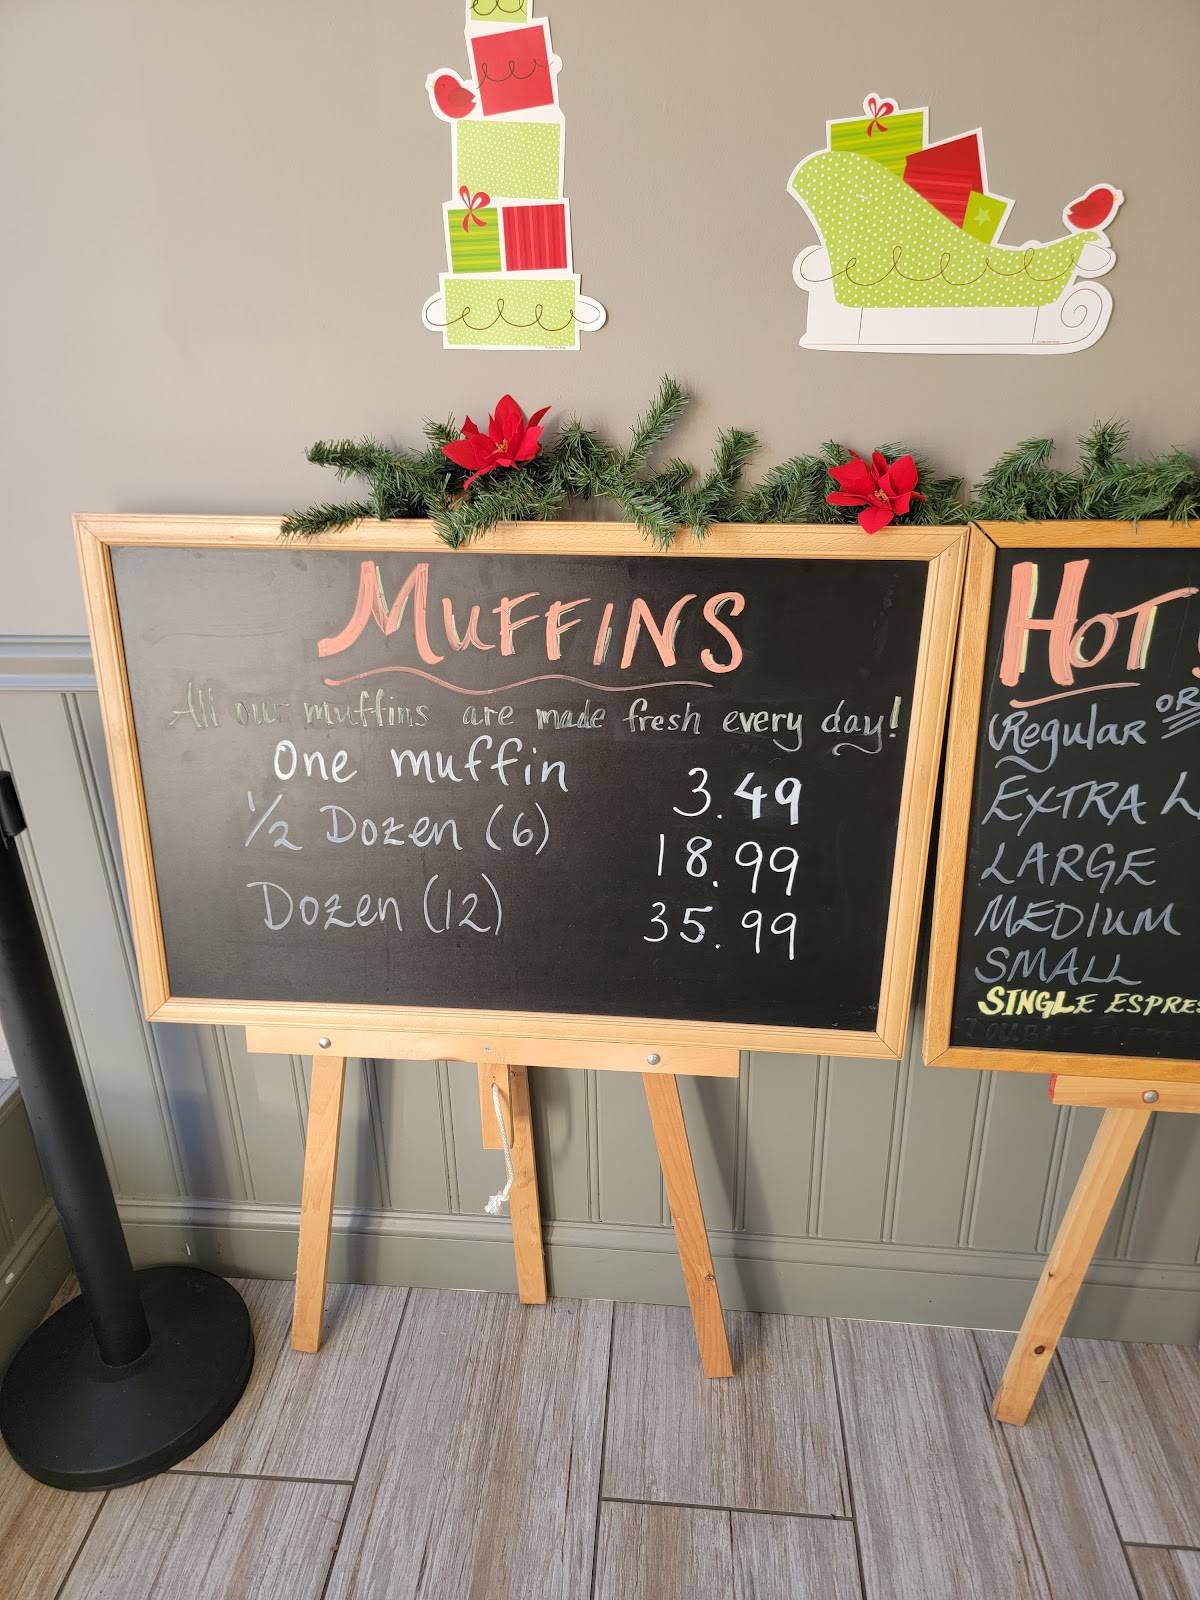 MUFFINS
All our muffins are made fresh every day!
One muffin 3.49
1/2 Dozen (6) 18.99
Dozen (12) 35.99
HOT
(Regular OR
EXTRA L
LARGE
MEDIUM
SMALL
SINGLE ESPRES